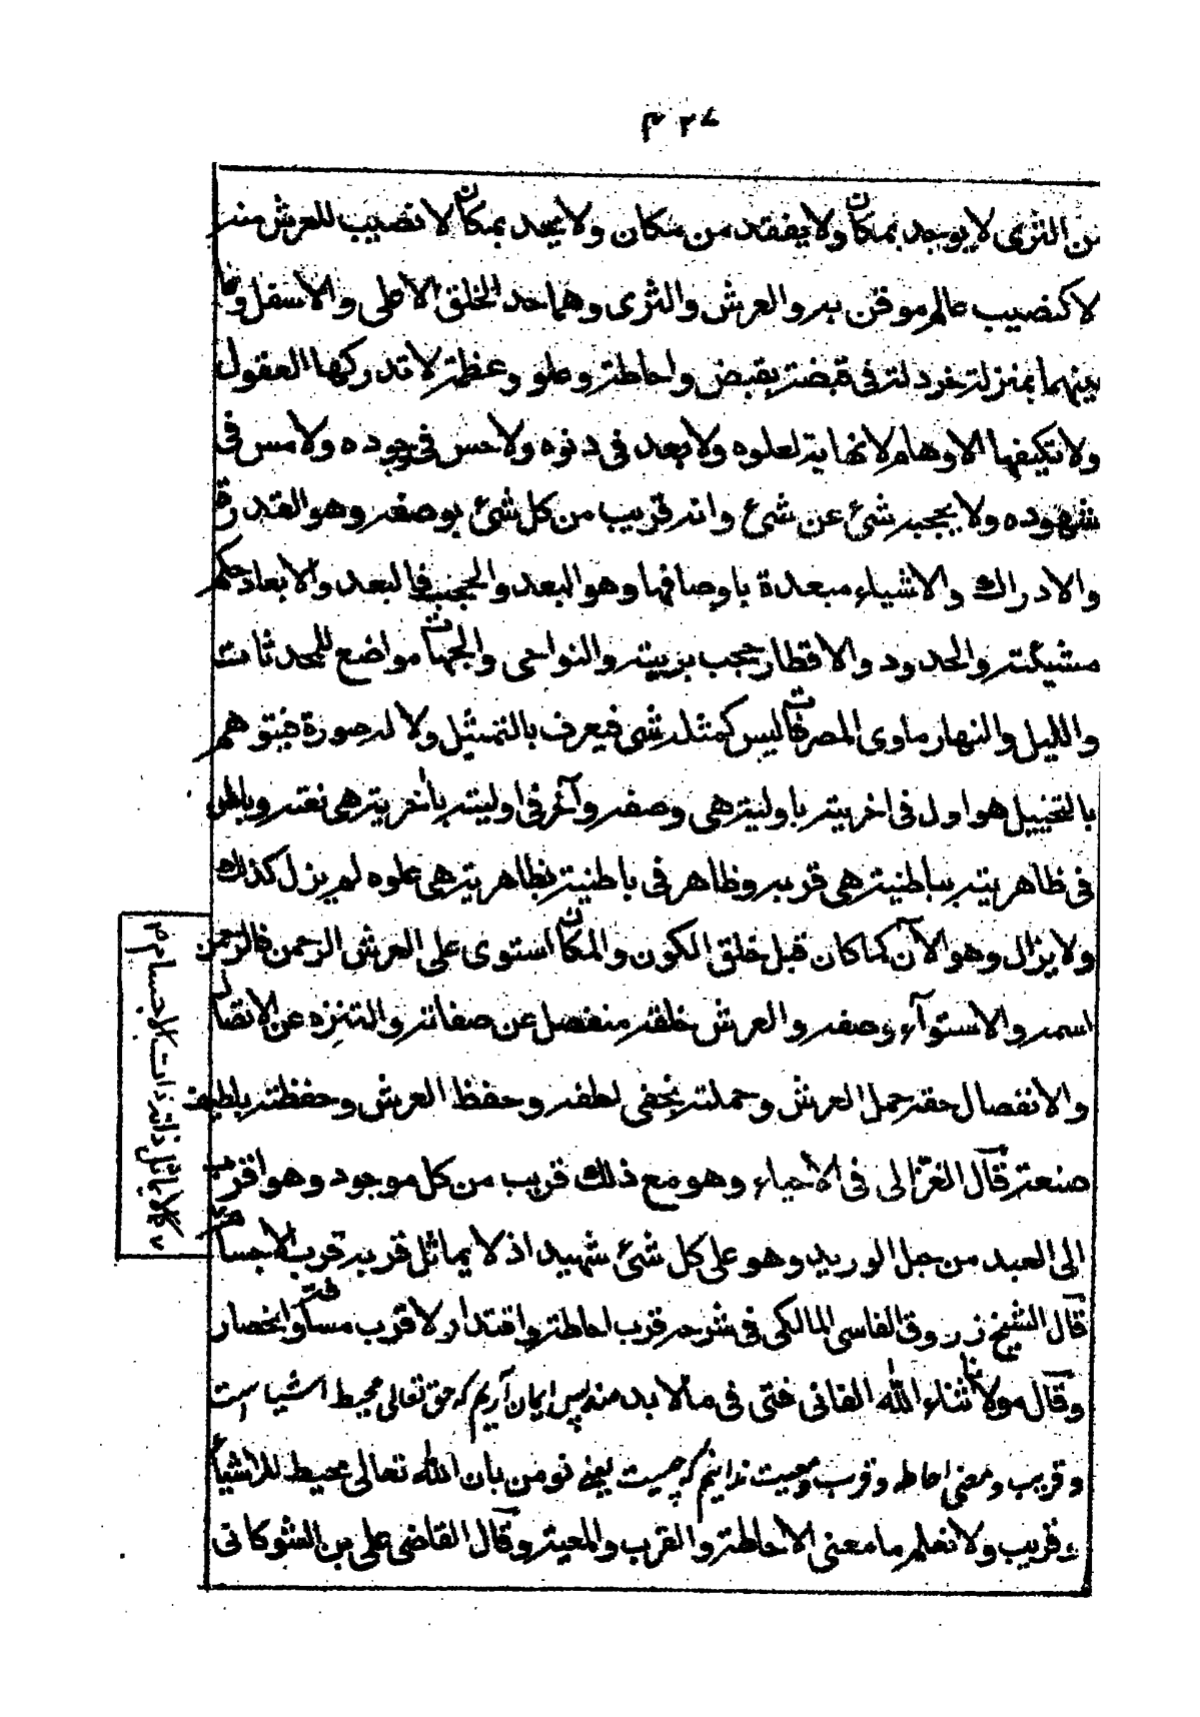 من الثرى لا يوجد بمكان ولا يفقد من مكان ولا يحد بمكان لا نصيب للعرش منه
لا كنصيب عالم موقن به والعرش والثرى وهما حد الخلق الاعلى والاسفل وما
بينهما بمنزلة خردلة فى قبضته بقبض واحاطة وعلو وعظمة لا تدركها العقول
ولا تكيفها الاوهام لا نهاية لعلوه ولا بعد فى دنوه ولا حس فى وجوده ولا مس فى
شهوده ولا يحجبه شئ عن شئ وانه قريب من كل شئ بوصفه وهو القدرة
والادراك والاشياء مبعدة باوصافها وهو البعد والحجب فالبعد والابعاد حكم
مشيئته والحدود والاقطار حجب بريته والنواحى والجهات مواضع للمحدثات
والليل والنهار ماوى المصرفات ليس كمثله شى فيعرف بالتمثيل ولا له صورة فيتوهم
بالتخييل هو اول فى اخريته باولية هى وصفه وآخر فى اوليته باخرية هى نعته وباطن
فى ظاهريته بباطنية هى قربه وظاهر فى باطنيته بظاهرية هى علوه لم يزل كذلك
ولا يزال وهو الآن كما كان قبل خلق الكون والمكان استوى على العرش الرحمن فالرحمن
اسمه والاستوآء وصفه والعرش خلقه منفصل عن صفاته والتنزه عن الاتصال
والانفصال حقه حمل العرش وحملته بخفى لطفه وحفظ العرش وحفظته بلطيف
صنعه قال الغزالى فى الاحياء وهو مع ذلك قريب من كل موجود وهو اقرب
الى العبد من حبل الوريد وهو على كل شئ شهيد اذ لا يماثل قربه قرب الاجسام
كما لا يماثل ذاته ذات الاجسام
قال الشيخ زروق الفاسى المالكى فى شرحه قرب احاطة واقتدار لا قرب مسافة وانحصار
وقال مولانا ثناء الله الفانى فتى فى مالابد منه پس ايمان آريم كه حق تعالى محيط اشيا است
وقريب ومعنى احاطه وقرب ومعيت ندانيم كه چيست يعنى نومن بان الله تعالى محيط للاشياء
وقريب ولا نعلم ما معنى الاحاطة والقرب والمعية وقال القاضى على بن الشوكانى